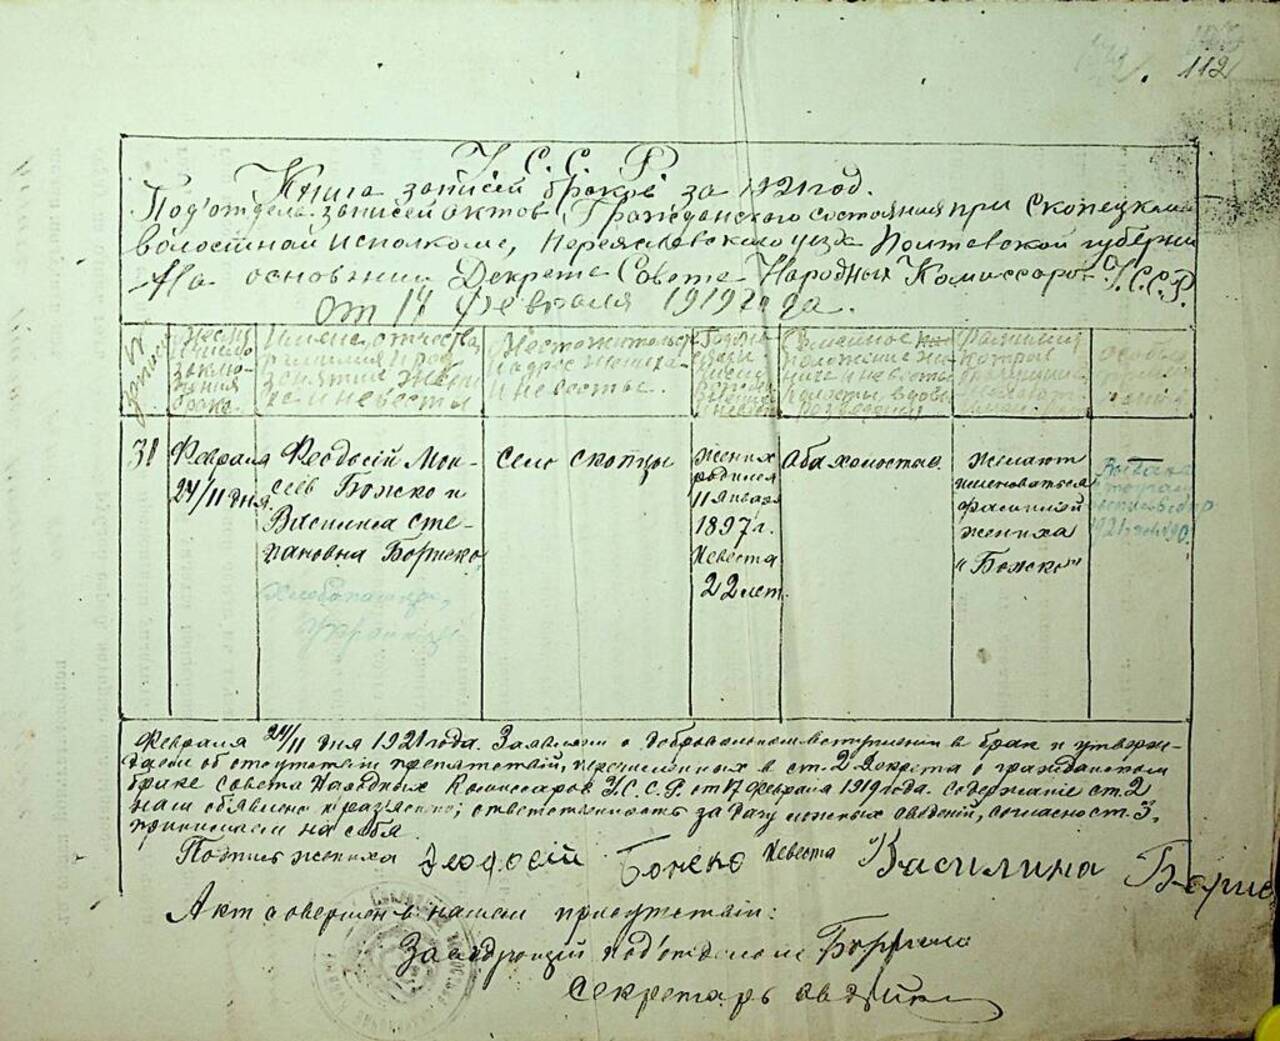 112
У. С. С. Р.
Книга записей браков за 1921 год.
Под'отдела записей актов Гражданского состояния при Скопецком
волостном исполкоме, Переяславского уезда Полтавской губернии
На основании Декрета Совета Народных Комиссаров У.С.С.Р.
от 17 февраля 1919 года.
№ записи
Месяц и число заключения брака.
Имена, отчества, фамилия и род занятия жениха и невесты
Местожительство и адрес жениха и невесты.
Семейное положение жениха и невесты холосты, вдовы разведены
Фамилия
31
Февраля
24/11 дня.
Феодосій Мои-
сеев Божко и
Василина Сте-
пановна Бориско
Хлебопашцы,
Украинцы
Село Скопцы
Жених
родился
11 января
1897 г.
Невеста
22 лет.
Оба холостые.
Желают
именоваться
фамилией
жениха
"Божко"
Февраля 24/11 дня 1921 года. Заявляем о добровольном вступлении в брак и утверж-
даем об отсутствіи препятствій, перечисленных в ст. 2 Декрета о гражданском
браке Совета Народных Комиссаров У.С.С.Р. от 17 февраля 1919 года. Содержаніе ст. 2
нам объявлено и раз'яснено; ответственность за дачу ложных сведений, согласно ст. 3,
принимаем на себя.
Подпись жениха Феодосій Божко Невеста Василина Борис
Акт совершен в нашем присутствіи:
Заведующій под'отделом
Секретарь